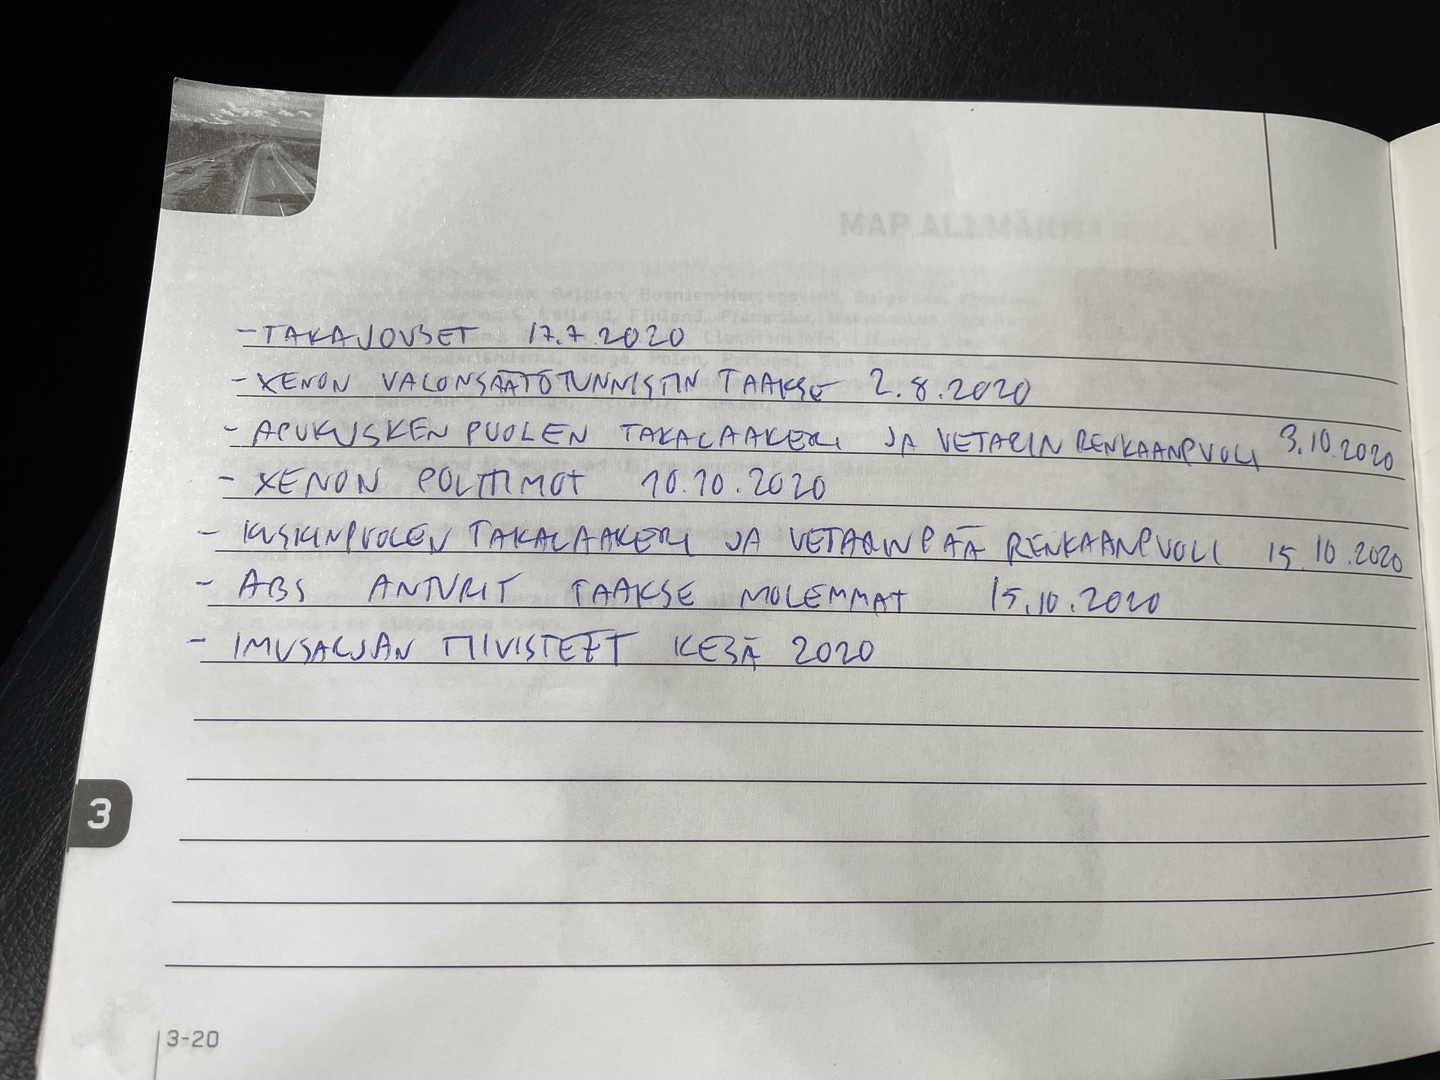 MAP ALLMÄN
- TAKAJOUSET 17.7.2020
- XENON VALONSÄÄTÖTUNNISTIN TAAKSE 2.8.2020
- APUKUSKEN PUOLEN TAKALAAKERI JA VETARIN RENKAANPUOLI 3.10.2020
- XENON POLTTIMOT 10.10.2020
- KUSKINPUOLEN TAKALAAKERI JA VETARINPÄÄ RENKAANPUOLI 15.10.2020
- ABS ANTURIT TAAKSE MOLEMMAT 15.10.2020
- IMUSARJAN TIIVISTEET KESÄ 2020
3
3-20